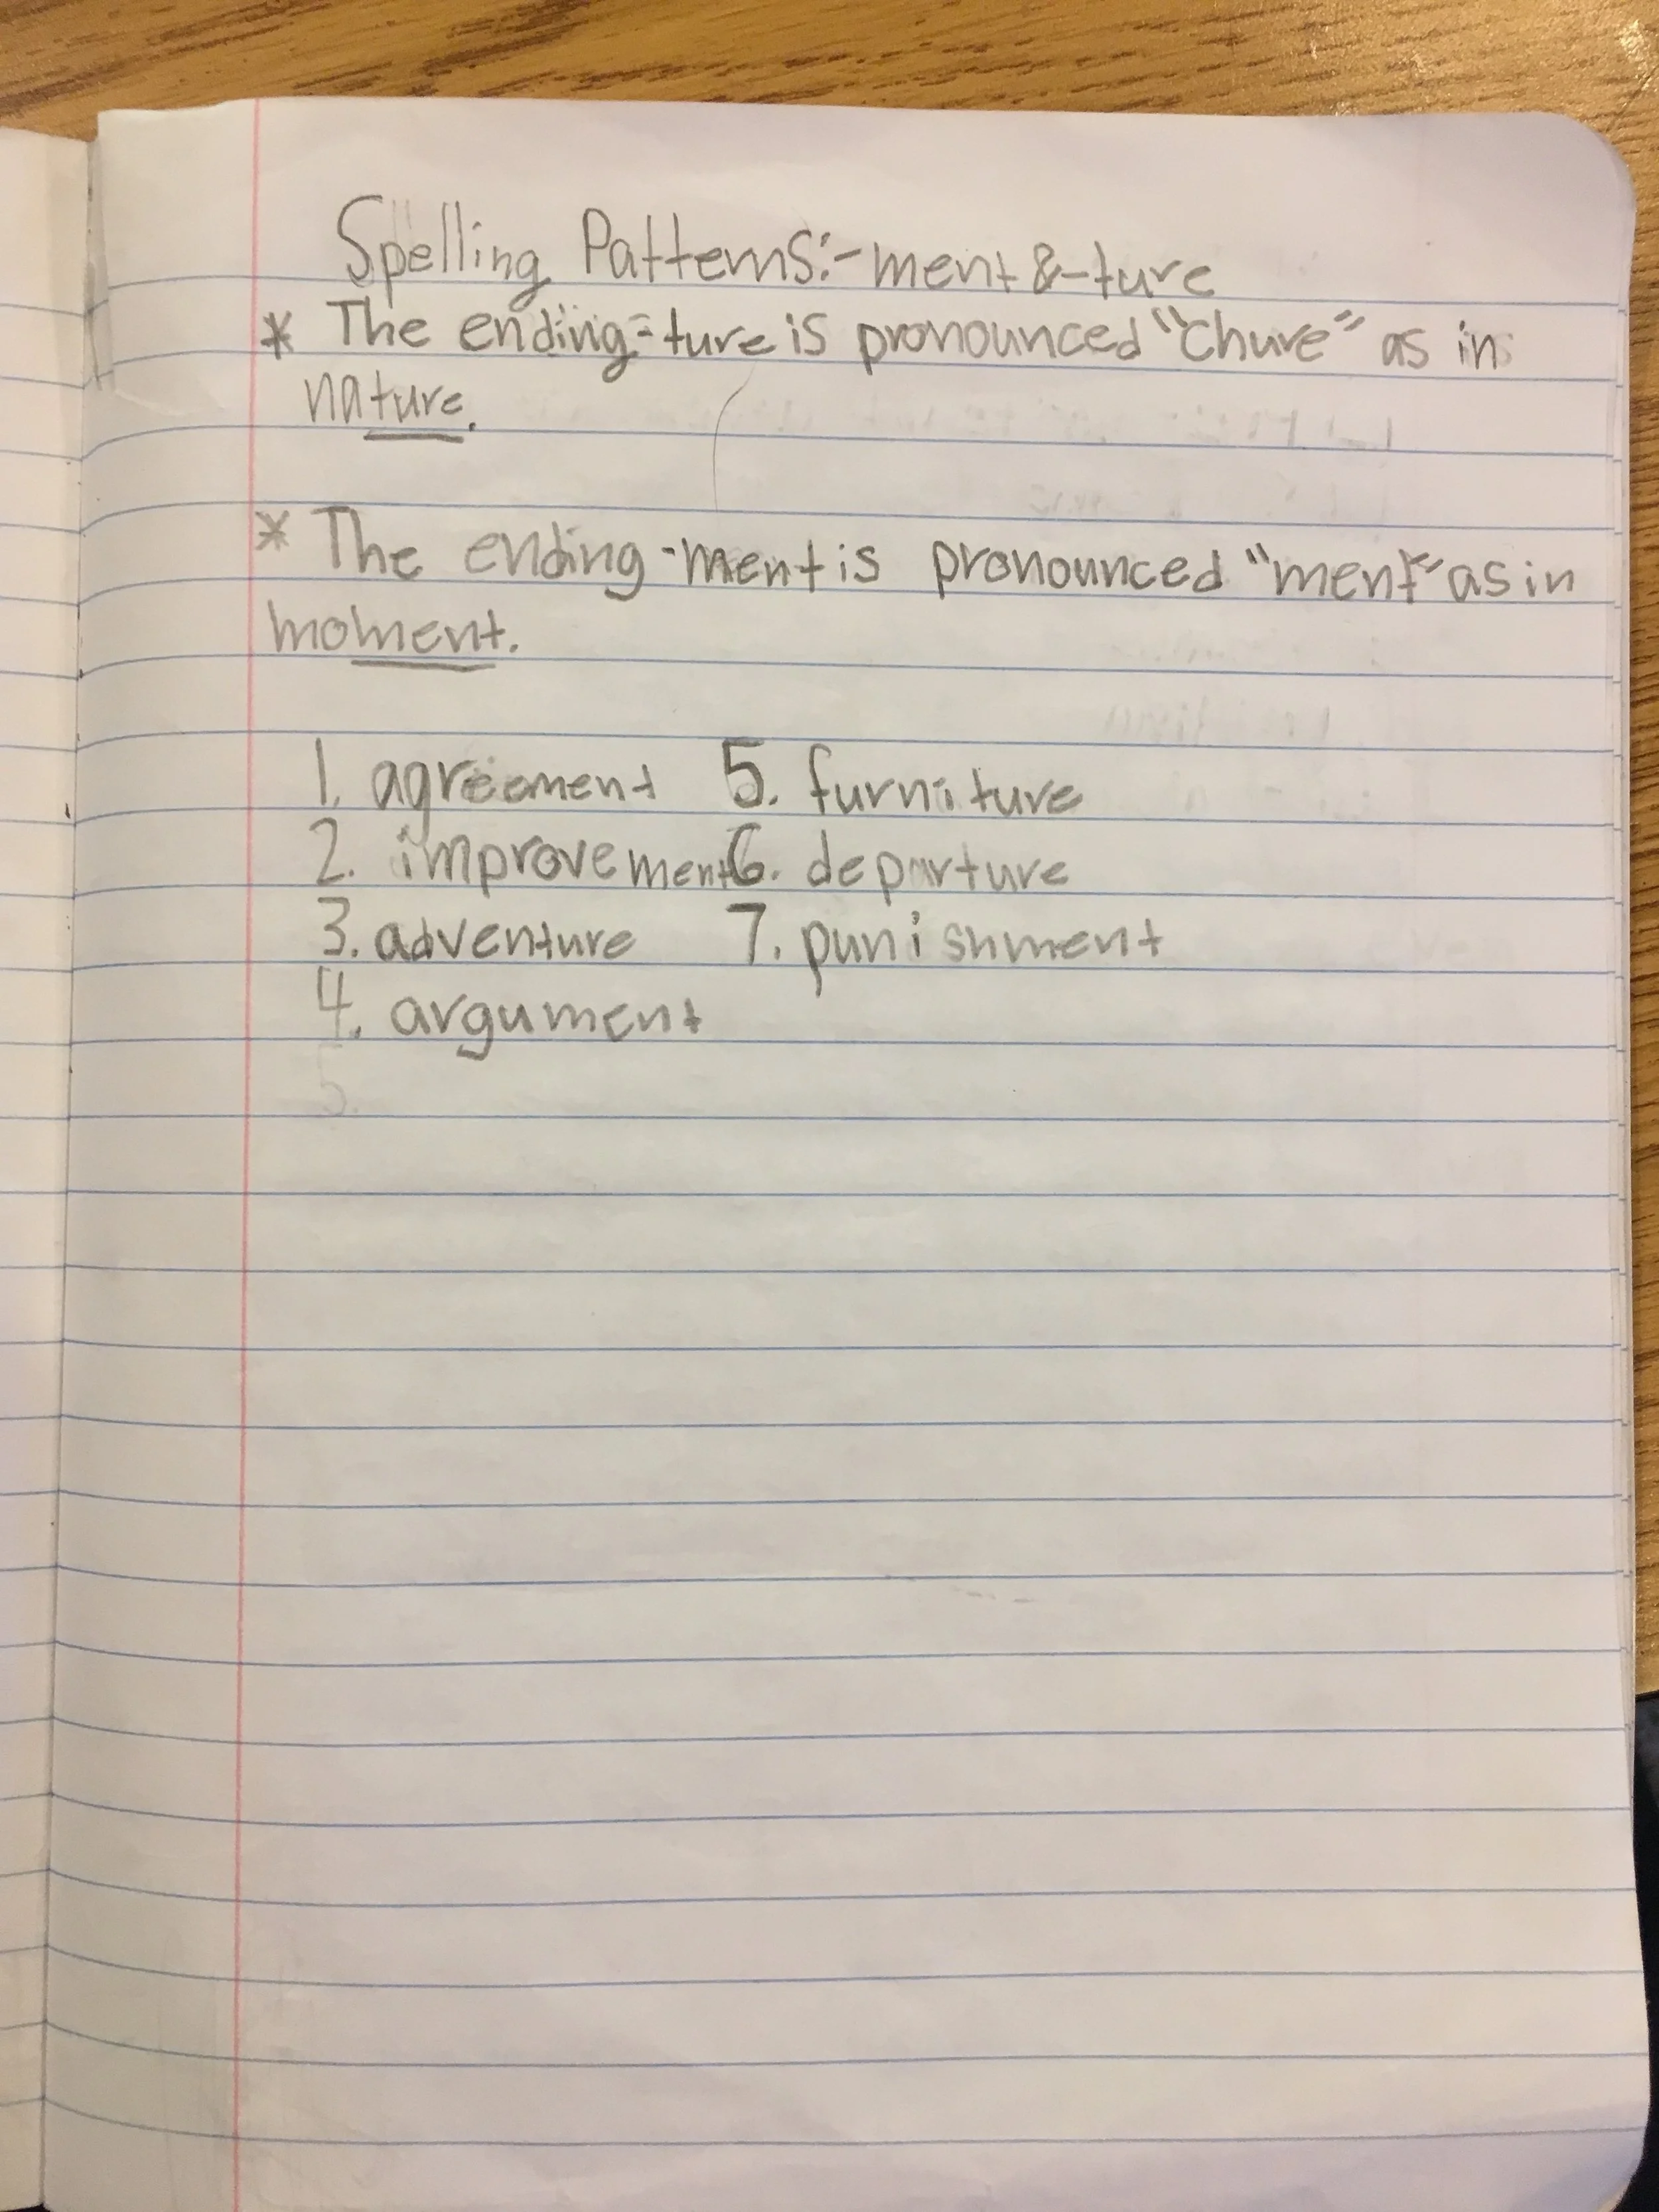 Spelling Patterns: -ment & -ture
* The ending -ture is pronounced "chure" as in
nature.
* The ending -ment is pronounced "ment" as in
moment.
1. agreement 5. furniture
2. improvement 6. departure
3. adventure 7. punishment
4. argument